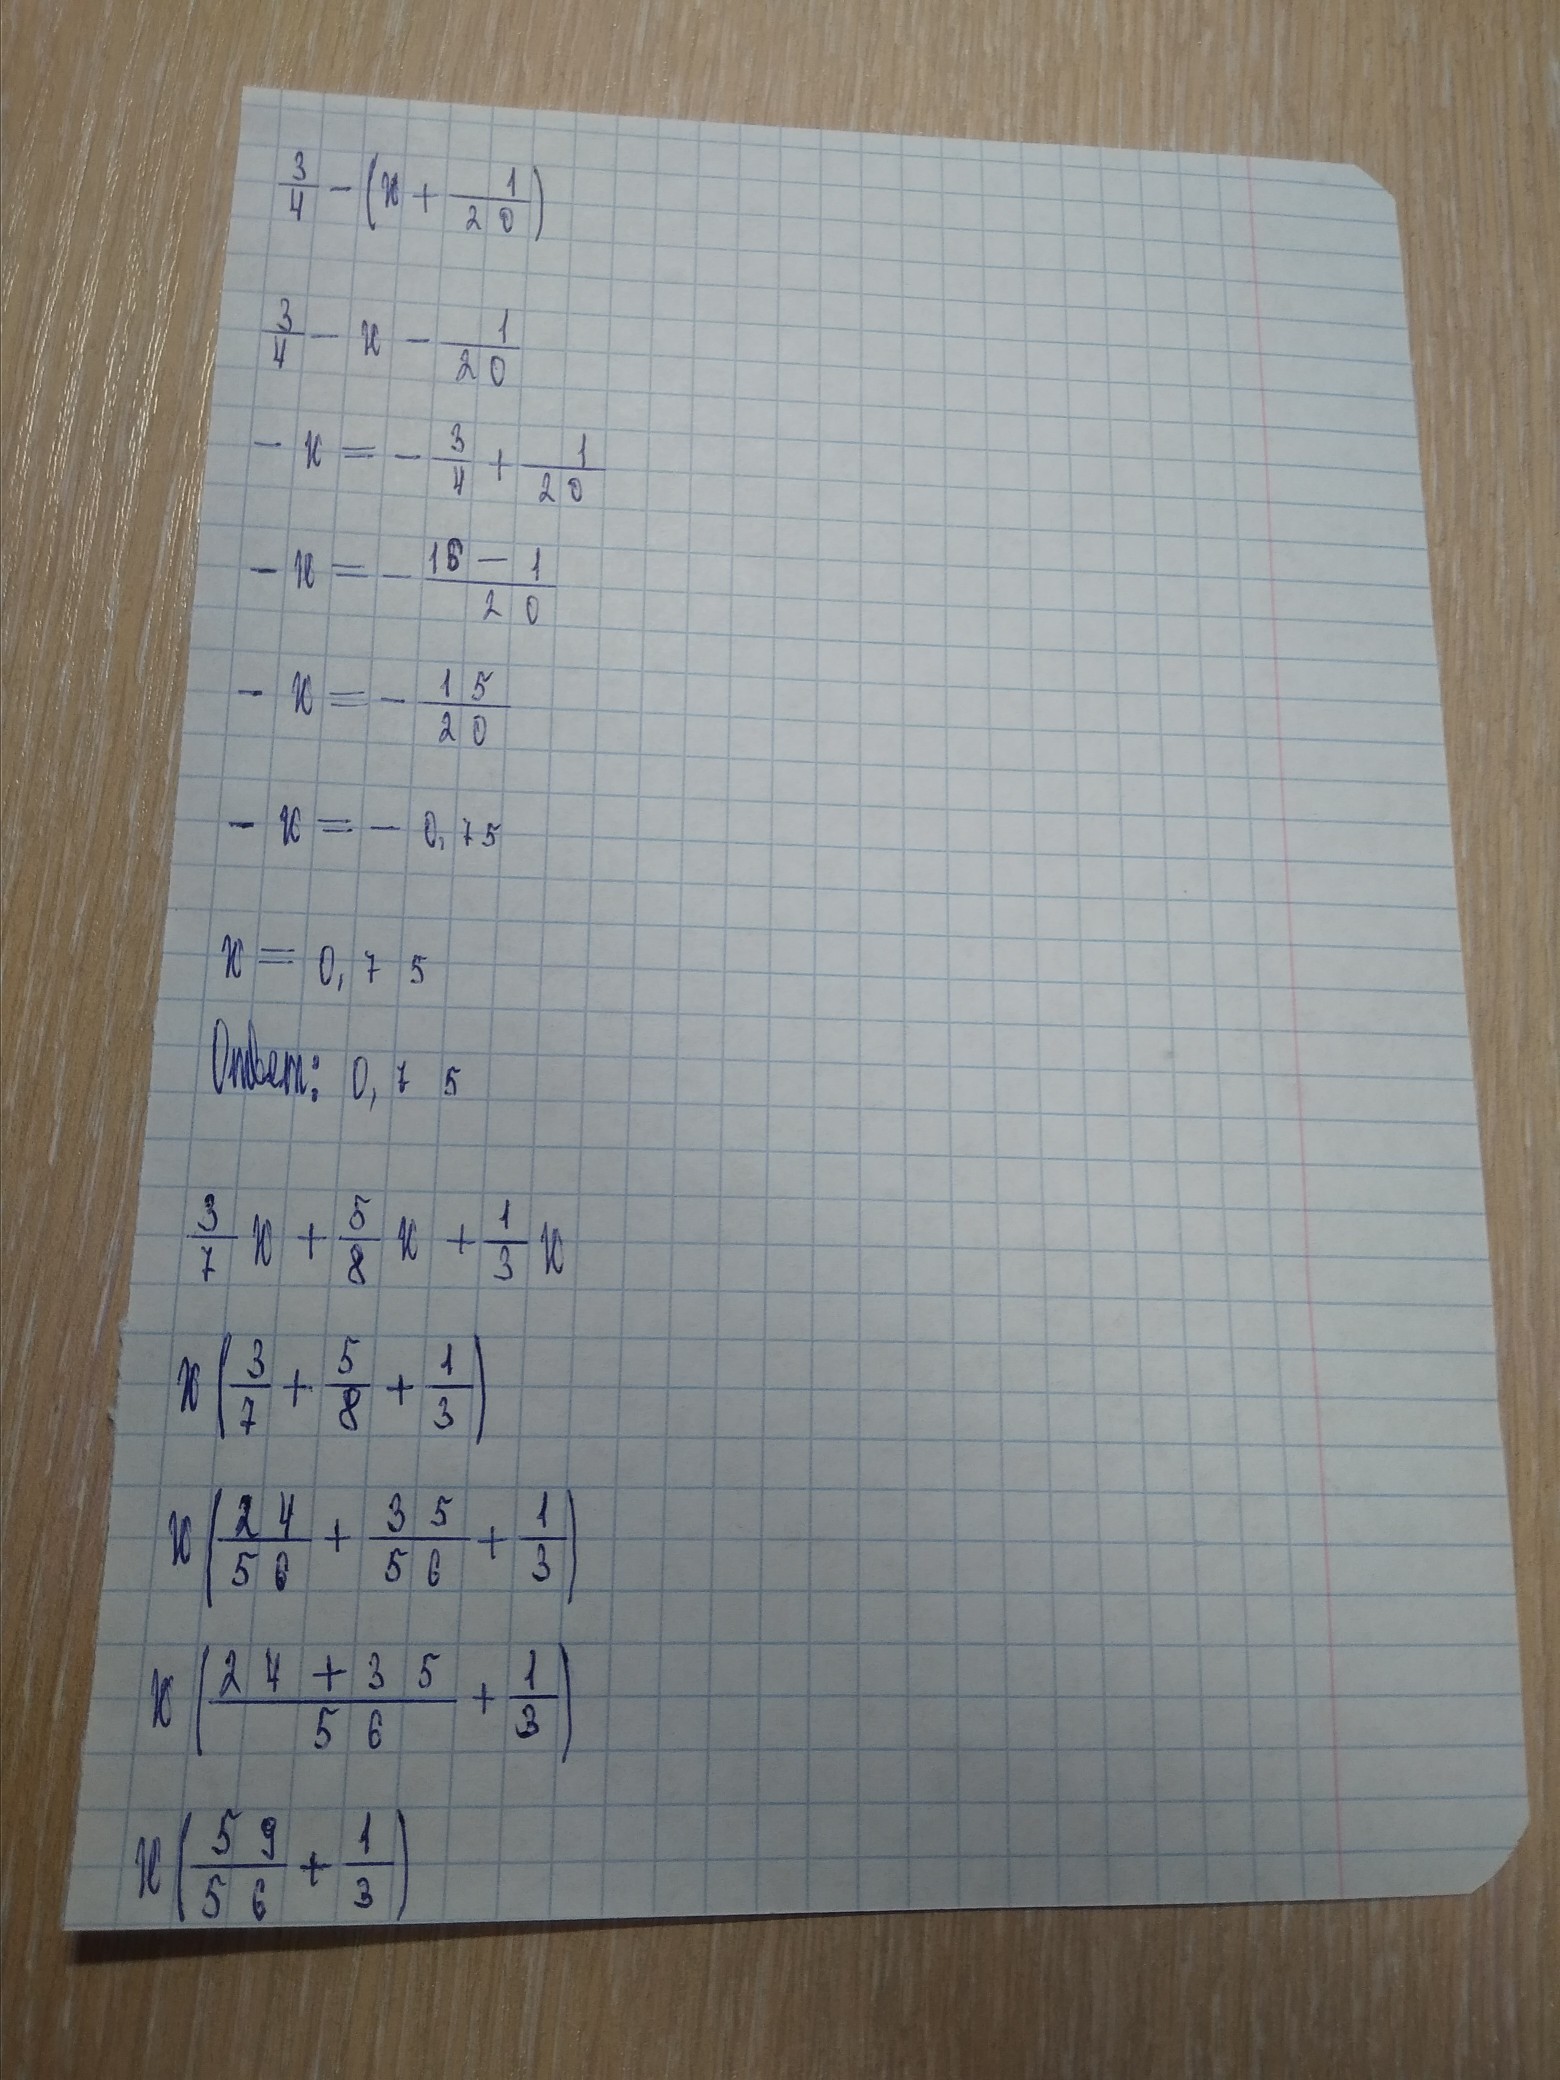 3/4 - (x + 1/20)
3/4 - x - 1/20
- x = - 3/4 + 1/20
- x = - 16 - 1/20
- x = - 15/20
- x = - 0,75
x = 0,75
Ответ: 0,75
3/7 x + 5/8 x + 1/3 x
x (3/7 + 5/8 + 1/3)
x (24/56 + 35/56 + 1/3)
x (24 + 35/56 + 1/3)
x (59/56 + 1/3)